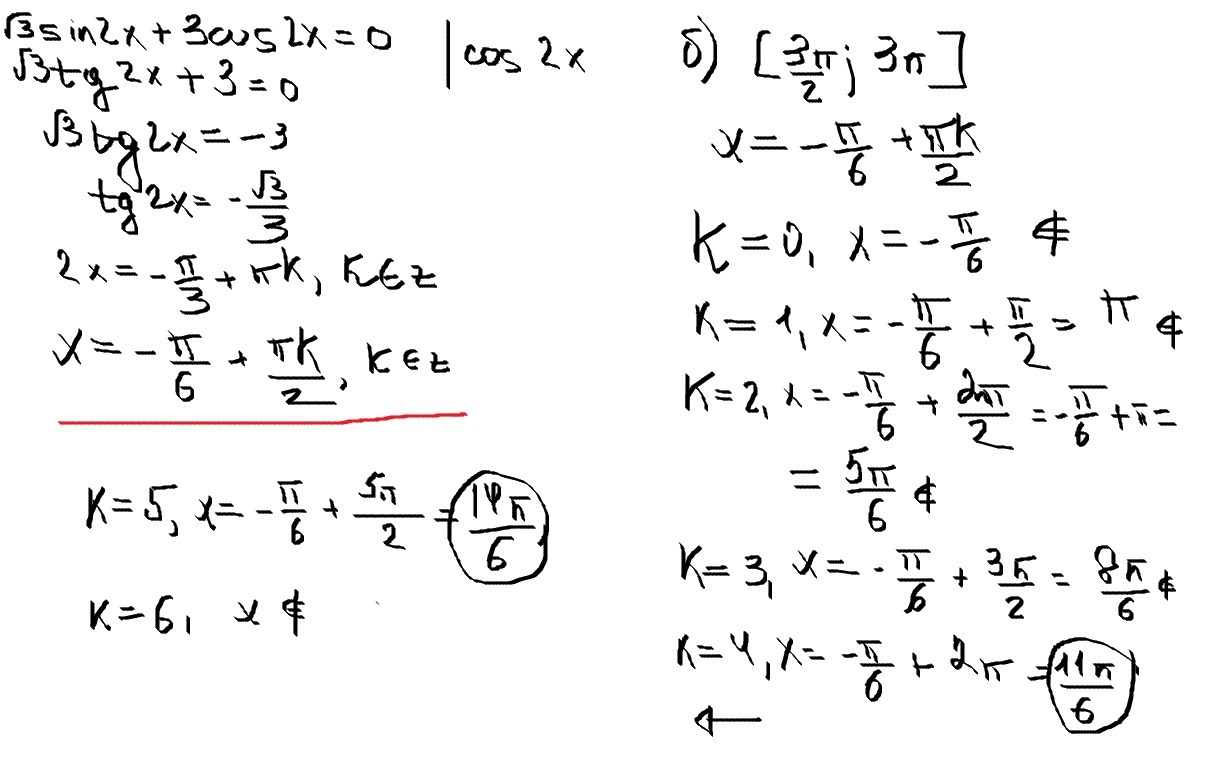 √3 sin2x + 3cos2x = 0 | cos 2x
√3tg 2x + 3 = 0
√3 tg 2x = -3
tg 2x = -√3/3
2x = -π/3 + πk, k∈z
x = -π/6 + πk/2, k∈z
k=5, x = -π/6 + 5π/2 = 14π/6
k=6, x ∉
б) [3π/2; 3π]
x = -π/6 + πk/2
k=0, x = -π/6 ∉
k=1, x = -π/6 + π/2 = π ∉
= 5π/6 ∉
k=3, x = -π/6 + 3π/2 = 8π/6 ∉
k=4, x = -π/6 + 2π = 11π/6
←